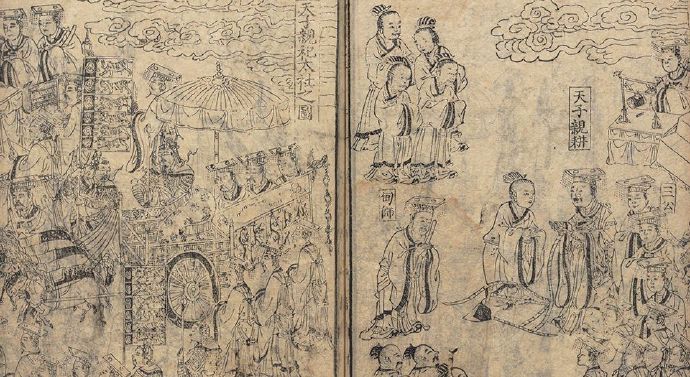 三公
天子親耕
甸師
天子親祀大社之圖